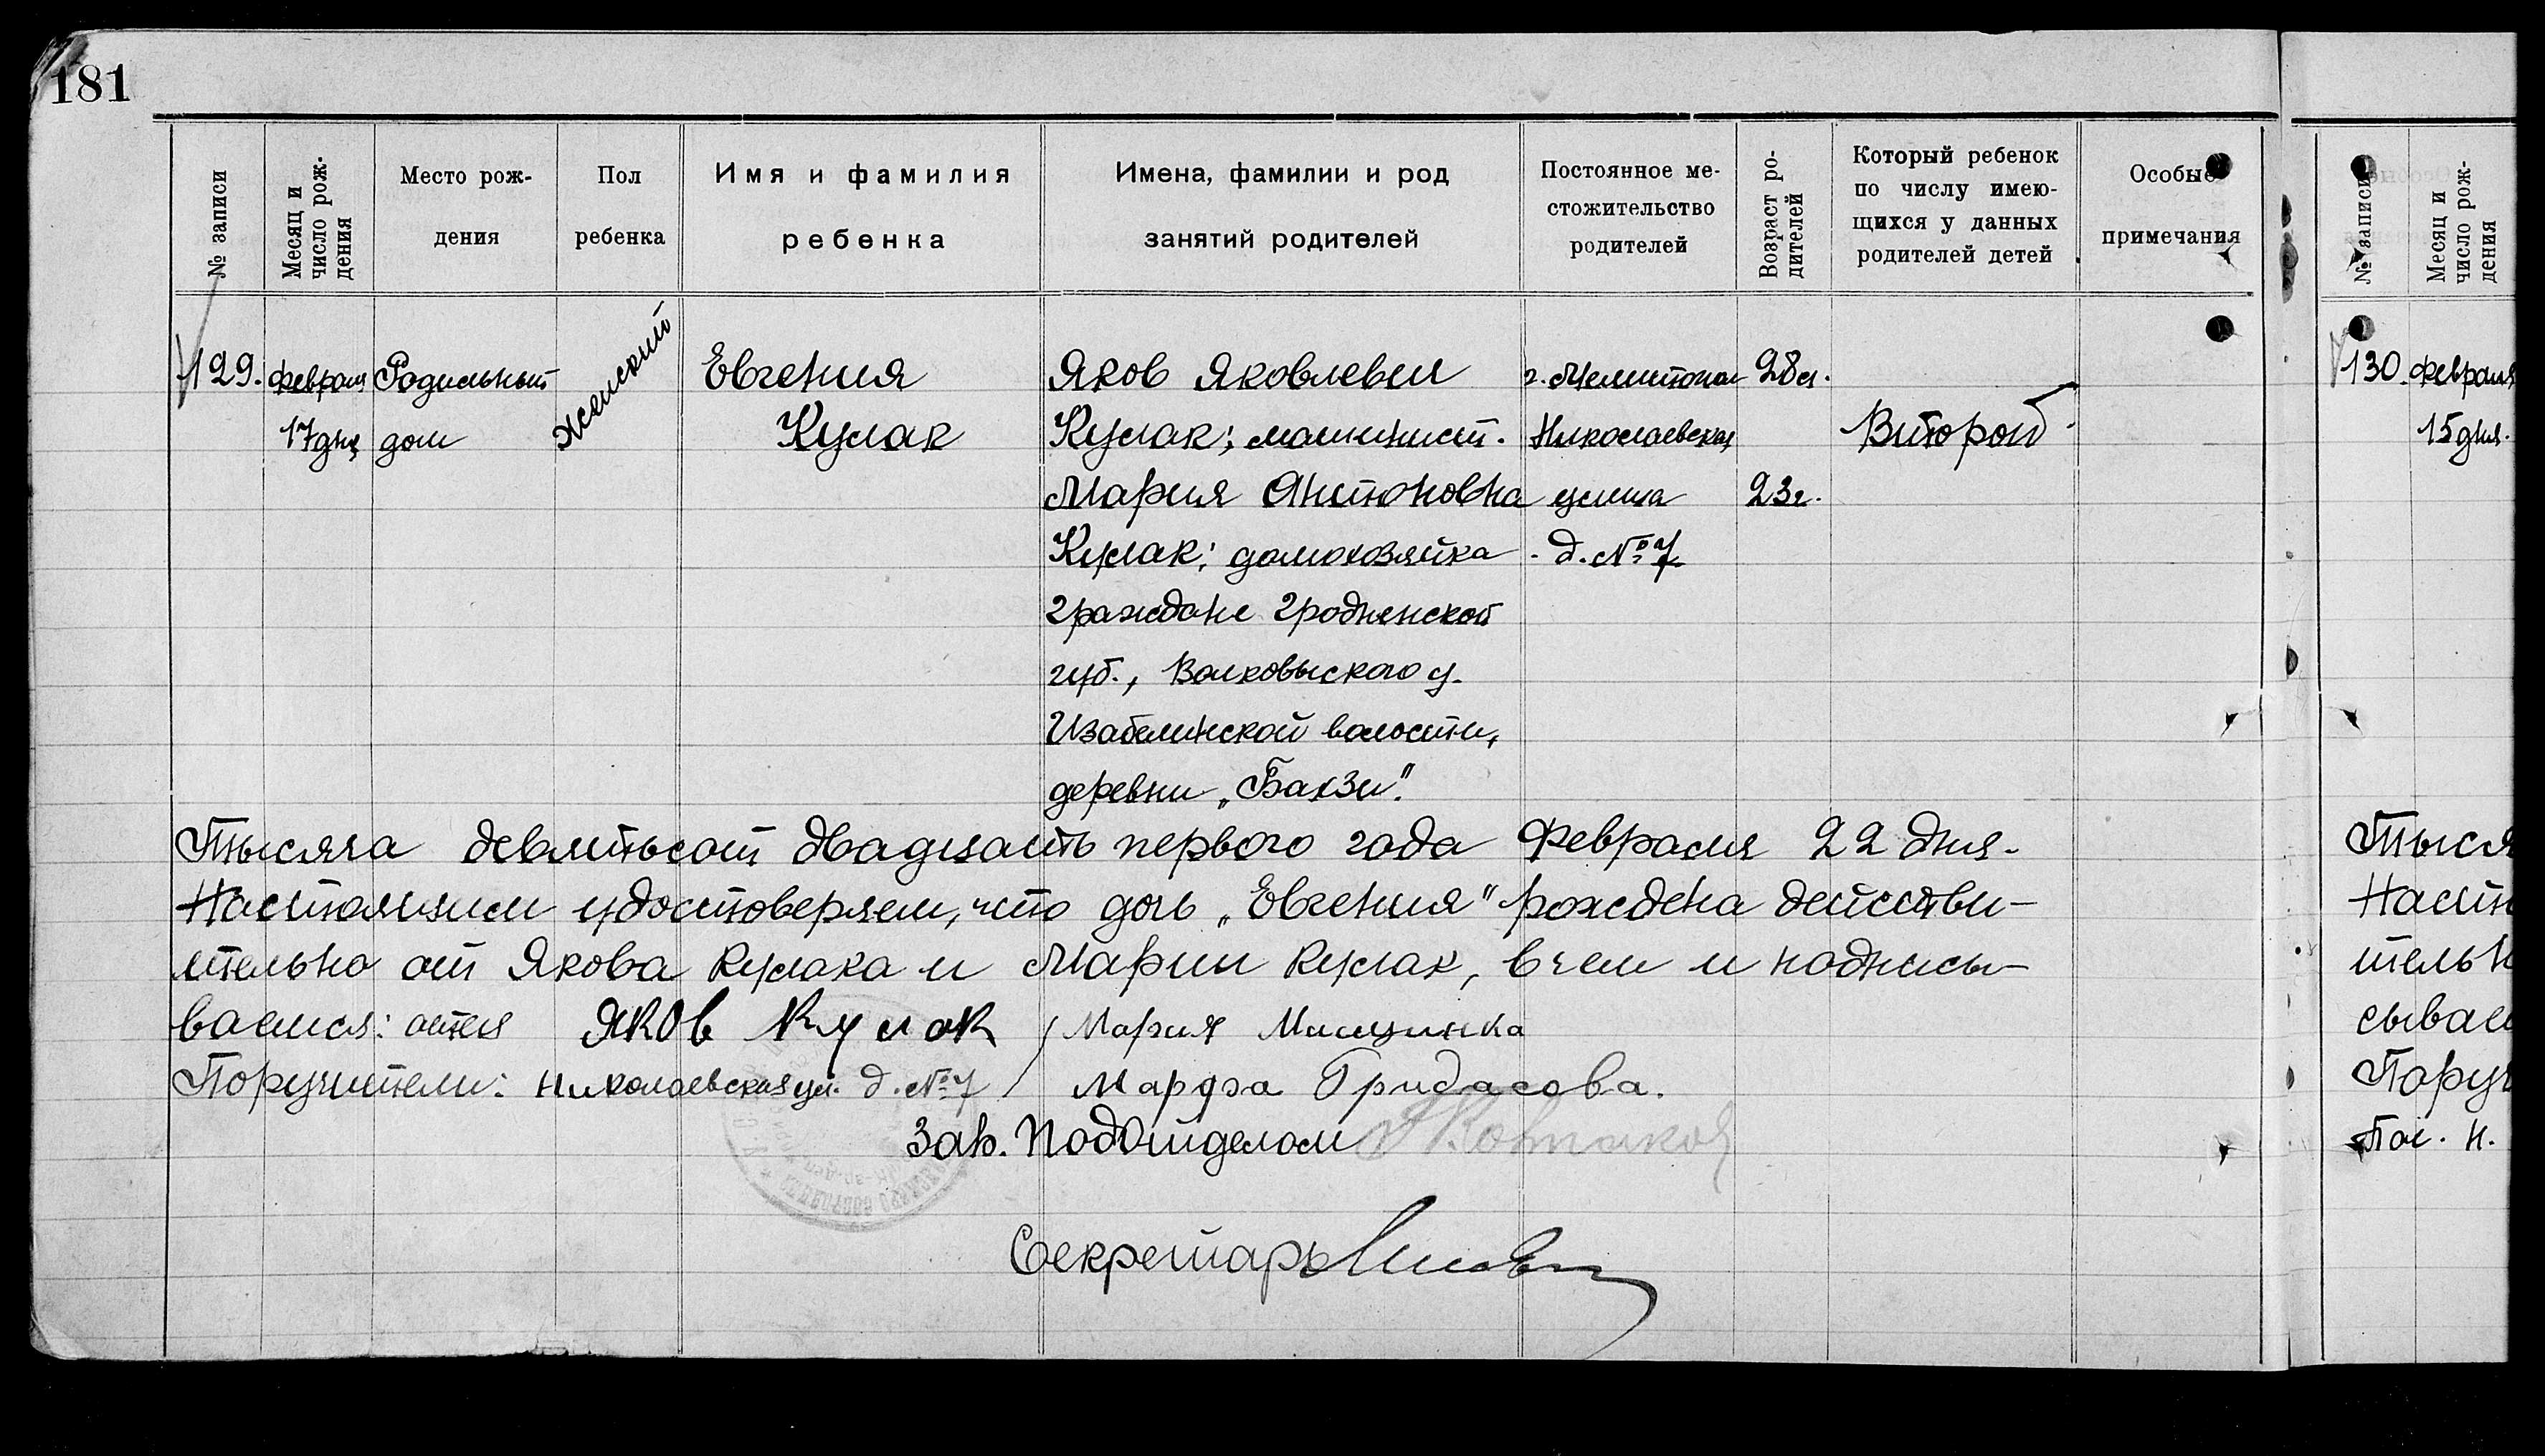 181
№ записи
Месяц и число рождения
Место рождения
Пол ребенка
Имя и фамилия ребенка
Имена, фамилии и род занятий родителей
Постоянное местожительство родителей
Возраст родителей
Который ребенок по числу имеющихся у данных родителей детей
Особые примечания
№ записи
Месяц и число рождения
129. февраля Родильный Женский Евгения Яков Яковлевич г. Мелитополь 28 л. 130. февраля
17 дня дом Кулак Кулак; машинист. Николаевская Второй 15 дня.
Мария Антоновна улица 23 г.
Кулак; домохозяйка д. № 7
граждане Гродненской
губ., Волковыского у.
Изабелинской волости,
деревни
Тысяча девятьсот двадцать первого года Февраля 22 дня. Тыся
Настоящим удостоверяем, что дочь „Евгения" рождена действи-
тельно от Якова Кулака и Марии Кулак, в чем и подписы- тельн
ваемся: отец Яков Кулак Мария сывае
Поручители: Николаевская ул. д. № 7 Марфа Гридасова. Поруч
Зав. Подотделом
Секретарь